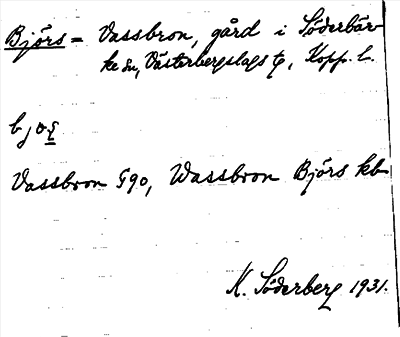 Björs = Vassbron, gård i Söderbär-
ke sn, Västerbergslags tg, Kopp. l.
bjoʂ
Vassbron G90, Wassbron Björs kb
K. Söderberg 1931.